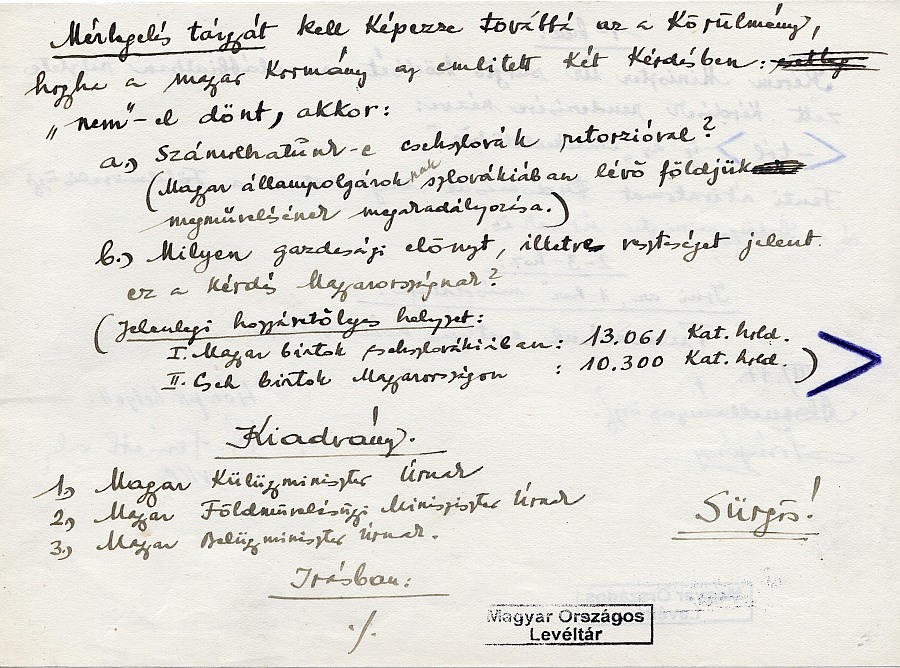 Mérlegelés tárgyát kell Képezze továbbá az a Körülmény,
hogyha a magyar Kormány az említett Két Kérdésben:
„nem"-el dönt, akkor:
a.) Számolhatunk-e csehszlovák retorzióval?
(Magyar állampolgároknak szlovákiában lévő földjük
megművelésének megakadályozása.)
b.) Milyen gazdasági előnyt, illetve veszteséget jelent
ez a Kérdés Magyarországnak?
(Jelenlegi hozzávetőleges helyzet:
I. Magyar birtok csehszlovákiában: 13.061 Kat. hold.
II. Cseh birtok Magyarországon : 10.300 Kat. hold.)
Kiadvány.
1.) Magyar Külügyminiszter Úrnak
2.) Magyar Földművelésügyi Miniszter Úrnak
3.) Magyar Belügyminiszter Úrnak.
Sürgős!
Irásban:
./.
Magyar Országos
Levéltár